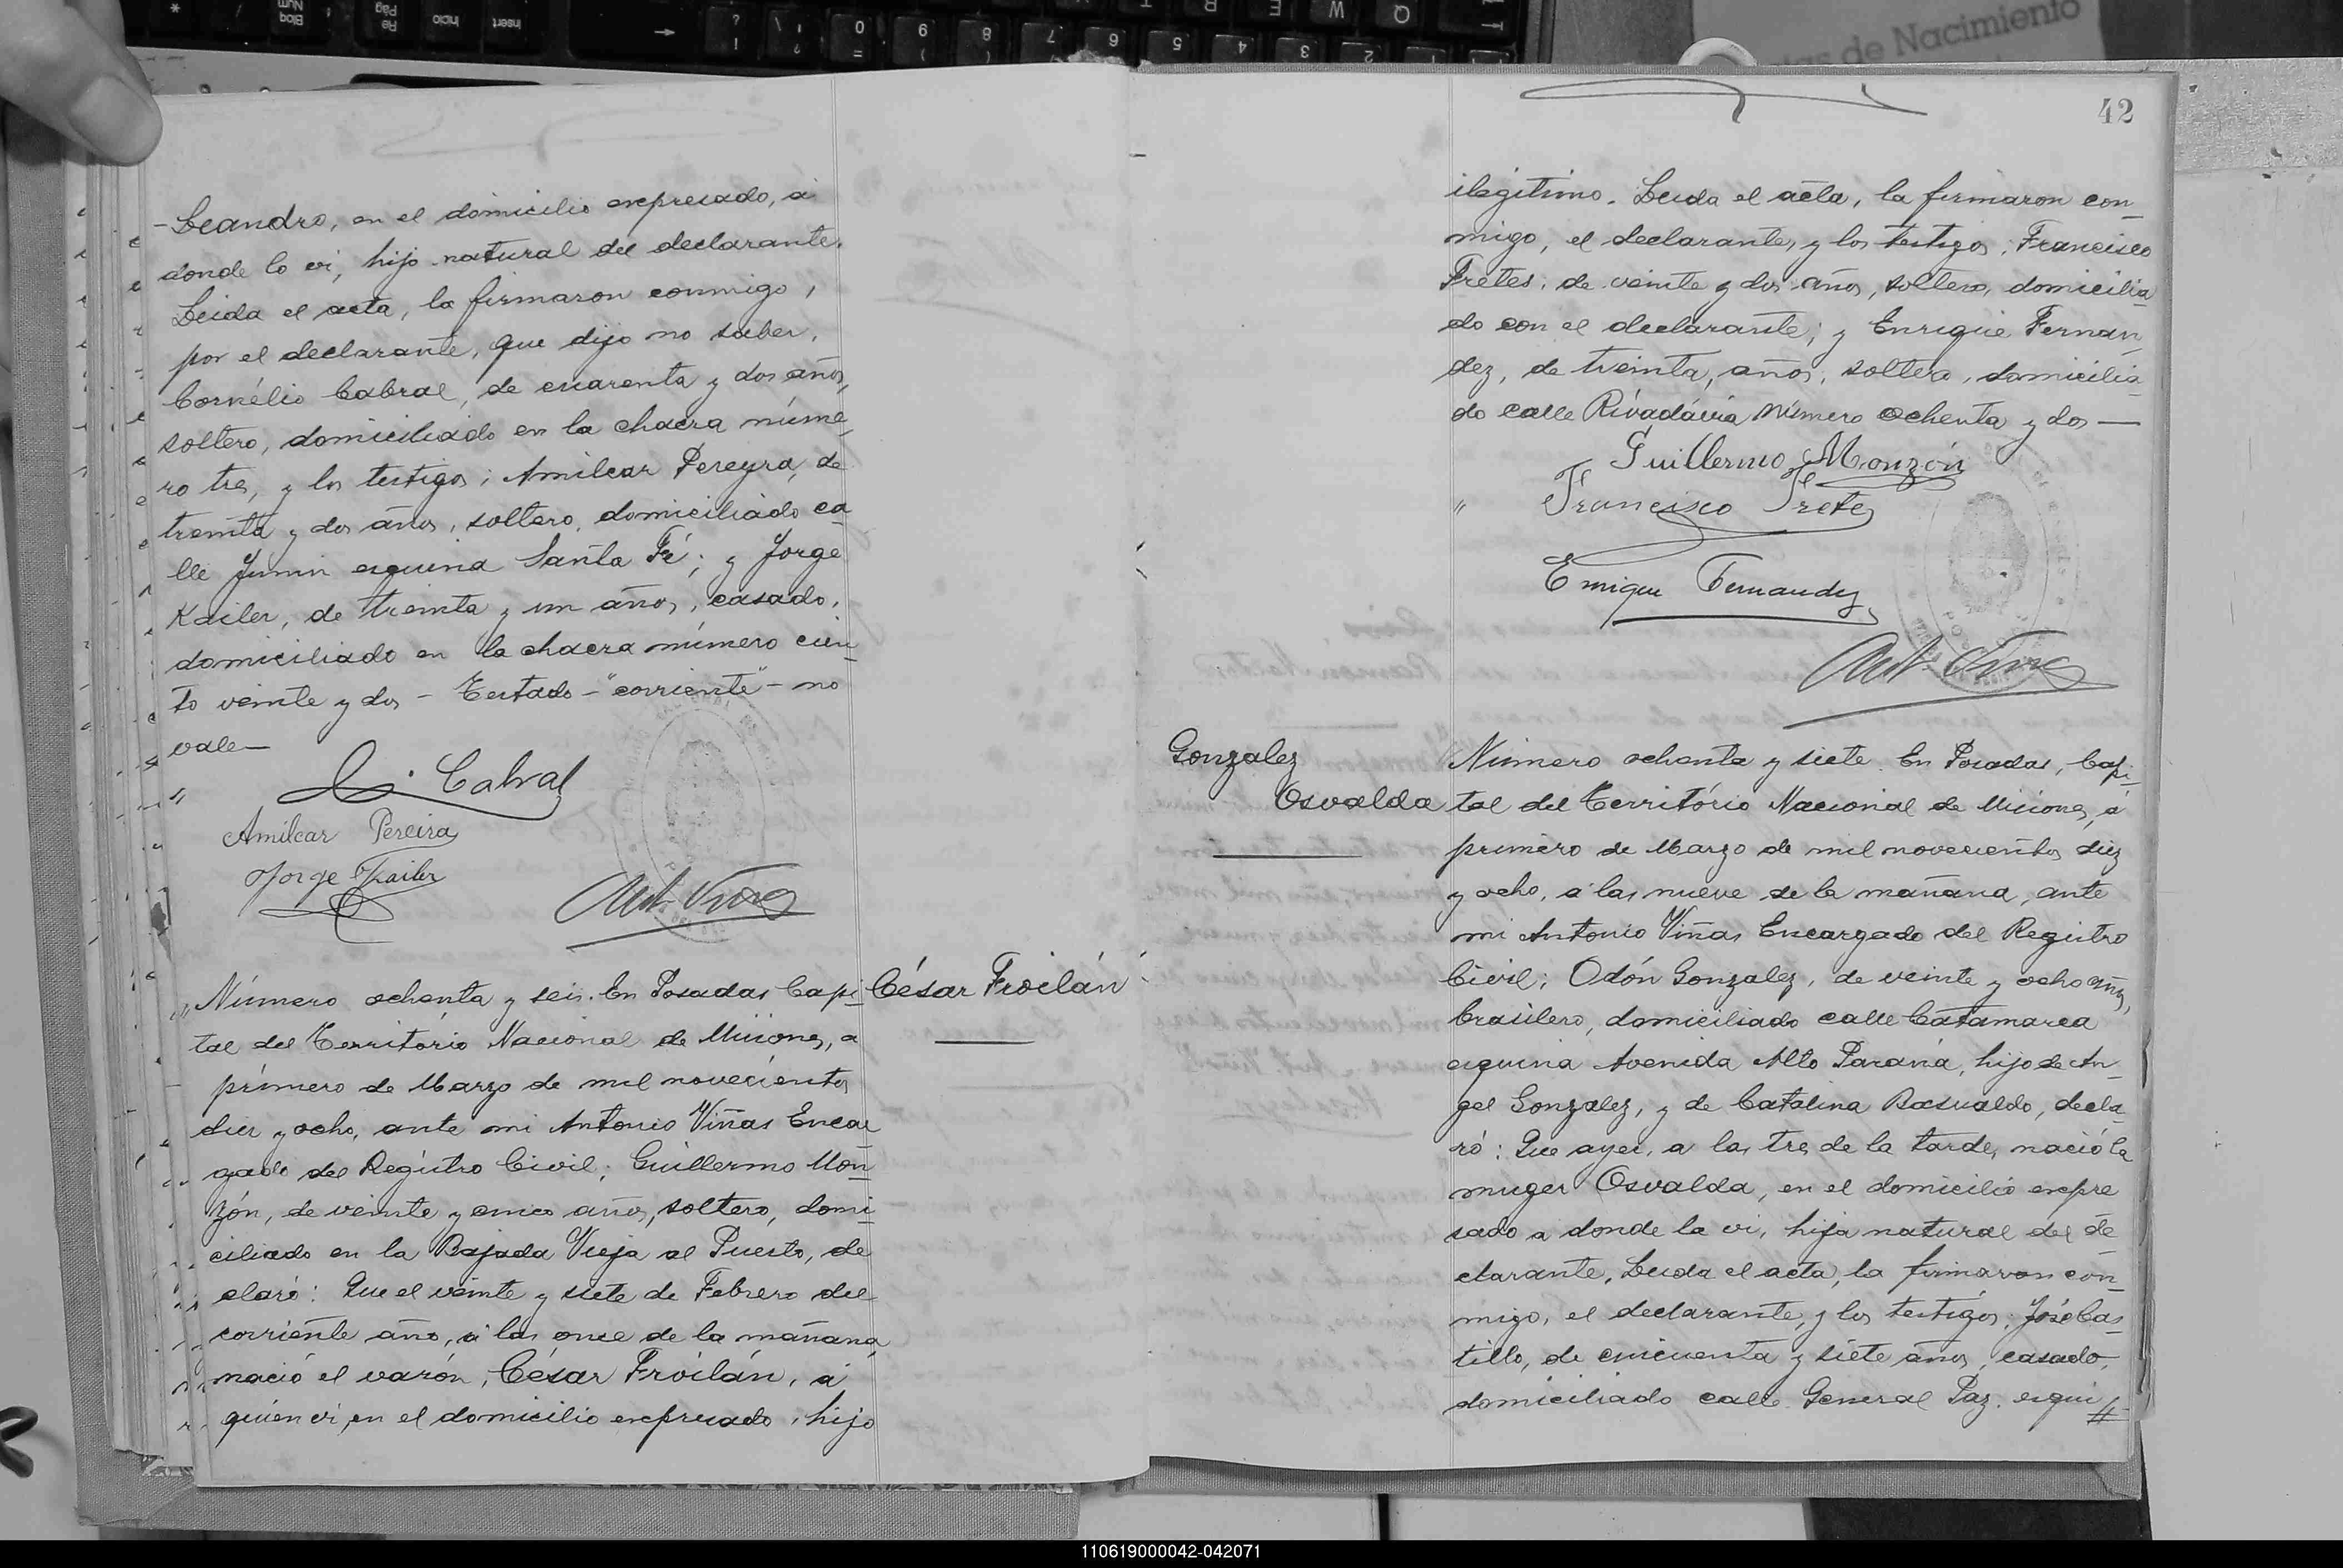 - Leandro, en el domicilio expresado, a
donde lo vi, hijo natural del declarante.
Leida el acta, la firmaron conmigo,
por el declarante, que dijo no saber,
Cornélio Cabral, de cuarenta y dos años,
soltero, domiciliado en la chacra núme_
ro tres, y los testigos; Amilcar Pereyra, de
treinta y dos años, soltero, domiciliado ca_
lle Junin esquina Santa Fé; y Jorge
Kailer, de treinta y un años, casado,
domiciliado en la chacra número cien_
to veinte y dos - Testado - "corriente" - no
vale—
Cabral
Amilcar Pereira
Jorge
Ant. Viñas
Número ochenta y seis. En Posadas Capi_
tal del Território Nacional de Misiones, a
primero de Marzo de mil novecientos
diez y ocho, ante mi Antonio Viñas Encar_
gado del Registro Civil; Guillermo Mon_
zón, de veinte y cinco años, soltero, domi_
ciliado en la Bajada Vieja al Puerto, de_
claró: Que el veinte y siete de Febrero del
corriente año, á las once de la mañana
nació el varón, César Froilán, á
quien vi, en el domicilio expresado, hijo
César Froilán
42
ilegitimo. Leida el acta, la firmaron con_
migo, el declarante, y los testigos; Francisco
Fretes; de veinte y dos años, soltero, domicilia_
do con el declarante; y Enrique Fernan_
dez, de treinta, años, soltero, domicilia_
do calle Rivadávia número ochenta y dos —
Guillermo Monzón
Francisco Fretes
Enrique Fernandez
Ant. Viñas
Gonzalez
Osvalda
Número ochenta y siete. En Posadas, Capi_
tal del Território Nacional de Misiones, á
primero de Marzo de mil novecientos diez
y ocho, á las nueve de la mañana, ante
mi Antonio Viñas Encargado del Registro
Civil; Odón Gonzalez, de veinte y ocho años,
brasilero, domiciliado calle Catamarca
esquina Avenida Alto Paraná, hijo de An_
gel Gonzalez, y de Catalina Basualdo, decla_
ró: Que ayer, a las tres de la tarde, nació la
muger Osvalda, en el domicilio expre_
sado a donde la vi, hija natural del de_
clarante, Leida el acta, la firmaron con_
migo, el declarante, y los testigos; José Cas_
tillo, de cincuenta y siete años, casado,
domiciliado calle General Paz esqui
110619000042-042071